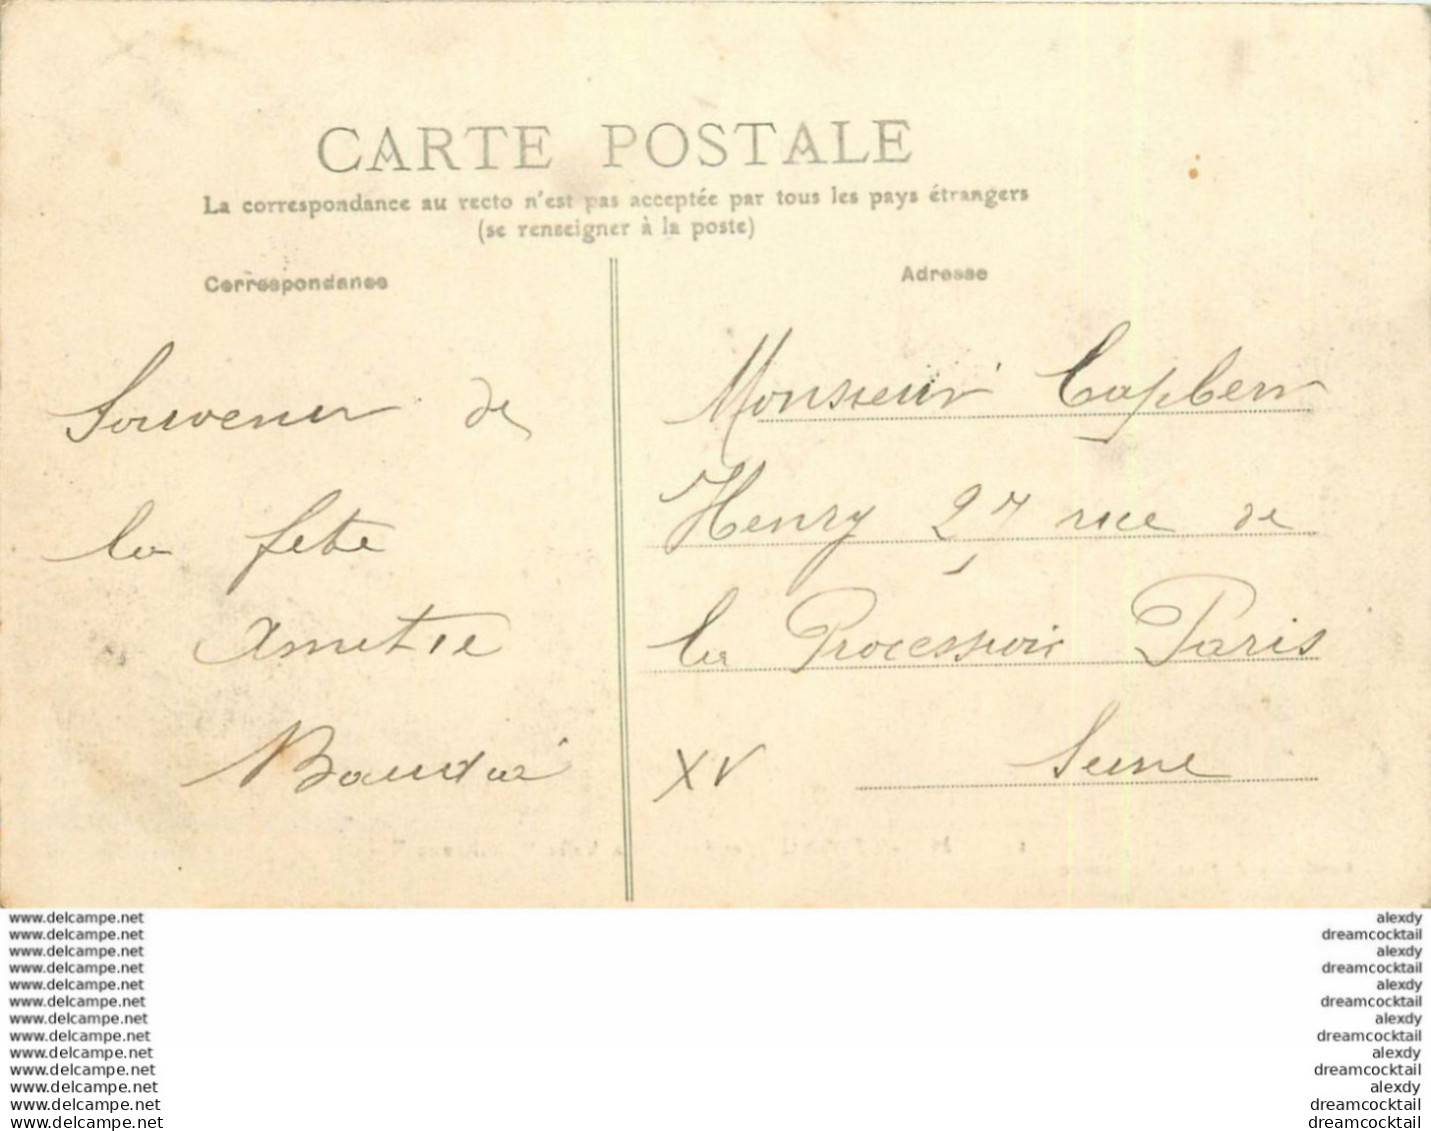 CARTE POSTALE
La correspondance au recto n'est pas acceptée par tous les pays étrangers
(se renseigner à la poste)
Correspondance
Adresse
Souvenir de
la fete
Amitie
Monsieur Caplern
Henry 27 rue de
la Procession Paris
XV Seine
www.delcampe.net
www.delcampe.net
www.delcampe.net
www.delcampe.net
www.delcampe.net
www.delcampe.net
www.delcampe.net
www.delcampe.net
www.delcampe.net
www.delcampe.net
www.delcampe.net
www.delcampe.net
www.delcampe.net
alexdy
dreamcocktail
alexdy
dreamcocktail
alexdy
dreamcocktail
alexdy
dreamcocktail
alexdy
dreamcocktail
alexdy
dreamcocktail
dreamcocktail